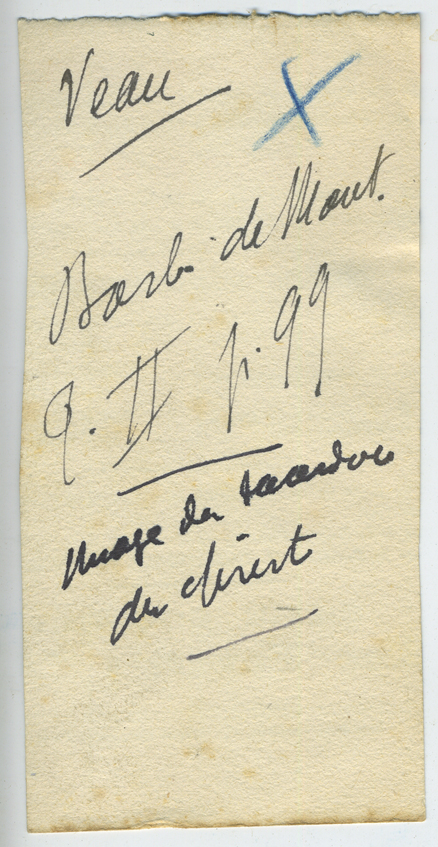 Veau
Barb. de Mont.
P. II p. 99
Image du sacerdoce
du Christ